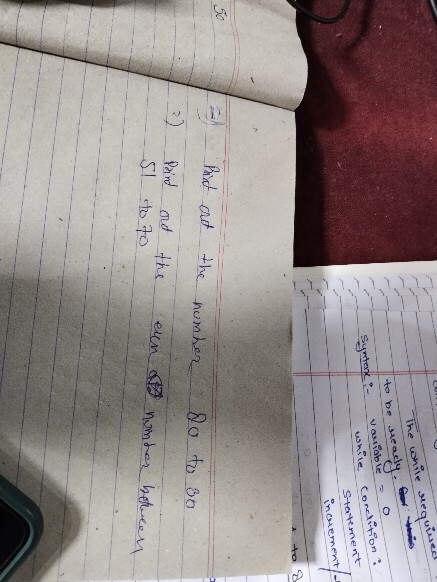 50
1) Print out the number 80 to 30
2) Print out the even number between
51 to 70
the while required
to be ready.
Syntax:- variable = 0
while condition:
Statement
increment/
to 8